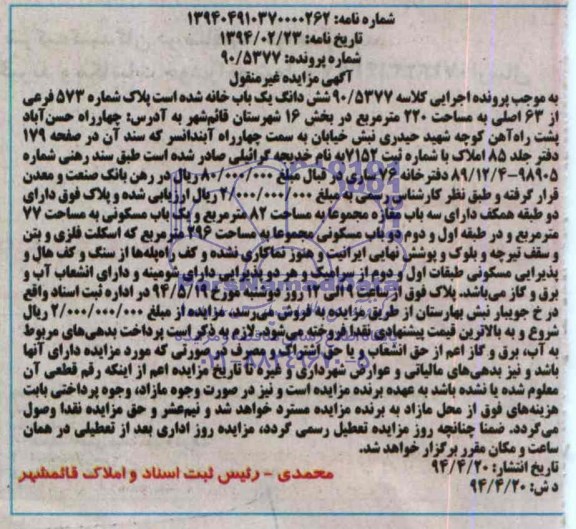 شماره نامه: ۱۳۹۴۰۴۹۱۰۳۷۰۰۰۰۲۶۲
تاریخ نامه: ۱۳۹۴/۰۲/۲۳
شماره پرونده: ۹۰/۵۳۷۷
آگهی مزایده غیرمنقول
به موجب پرونده اجرایی کلاسه ۹۰/۵۳۷۷ شش دانگ یک باب خانه شده است پلاک شماره ۵۷۳ فرعی
از ۶۳ اصلی به مساحت ۲۲۰ مترمربع در بخش ۱۶ شهرستان قائم‌شهر به آدرس: چهارراه حسن‌آباد
پشت راه‌آهن کوچه شهید حیدری نبش خیابان به سمت چهارراه آبندانسر که سند آن در صفحه ۱۷۹
دفتر جلد ۸۵ املاک با شماره ثبت ۷۱۵۲ به نام خدیجه گرائیلی صادر شده است طبق سند رهنی شماره
۹۸۹۰۵-۸۹/۱۲/۴ دفترخانه ۷۶ ساری در قبال مبلغ ۸۰/۰۰۰/۰۰۰ ریال در رهن بانک صنعت و معدن
قرار گرفته و طبق نظر کارشناس رسمی به مبلغ ۲/۰۰۰/۰۰۰/۰۰۰ ریال ارزیابی شده و پلاک فوق دارای
دو طبقه همکف دارای سه باب مغازه مجموعا به مساحت ۸۲ مترمربع و یک باب مسکونی به مساحت ۷۷
مترمربع و در طبقه اول و دوم دو باب مسکونی مجموعا به مساحت ۲۹۶ مترمربع که اسکلت فلزی و بتن
و سقف تیرچه و بلوک و پوشش نهایی ایرانیت و هنوز نماکاری نشده و کف راه‌پله‌ها از سنگ و کف هال و
پذیرایی مسکونی طبقات اول و دوم از سرامیک و هر دو پذیرایی دارای شومینه و دارای انشعاب آب و
برق و گاز می‌باشد. پلاک فوق از ساعت ۹ الی ۱۲ روز دوشنبه مورخ ۹۴/۵/۱۹ در اداره ثبت اسناد واقع
در خ جویبار نبش بهارستان از طریق مزایده به فروش می‌رسد. مزایده از مبلغ ۲/۰۰۰/۰۰۰/۰۰۰ ریال
شروع و به بالاترین قیمت پیشنهادی نقدا فروخته می‌شود. لازم به ذکر است پرداخت بدهی‌های مربوط
به آب، برق و گاز اعم از حق انشعاب و یا حق اشتراک و مصرف در صورتی که مورد مزایده دارای آنها
باشد و نیز بدهی‌های مالیاتی و عوارض شهرداری و غیره تا تاریخ مزایده اعم از اینکه رقم قطعی آن
معلوم شده یا نشده باشد به عهده برنده مزایده است و نیز در صورت وجود مازاد، وجوه پرداختی بابت
هزینه‌های فوق از محل مازاد به برنده مزایده مسترد خواهد شد و نیم‌عشر و حق مزایده نقدا وصول
می‌گردد. ضمنا چنانچه روز مزایده تعطیل رسمی گردد، مزایده روز اداری بعد از تعطیلی در همان
ساعت و مکان مقرر برگزار خواهد شد.
تاریخ انتشار: ۹۴/۴/۲۰
د ش: ۹۴/۴/۲۰
محمدی - رئیس ثبت اسناد و املاک قائمشهر